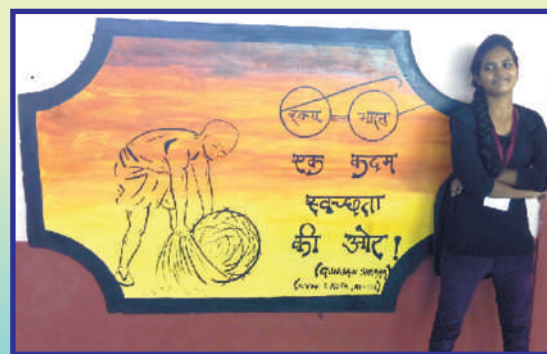 स्वच्छ भारत
एक कदम
स्वच्छता
की ओर!
(GUNJAN